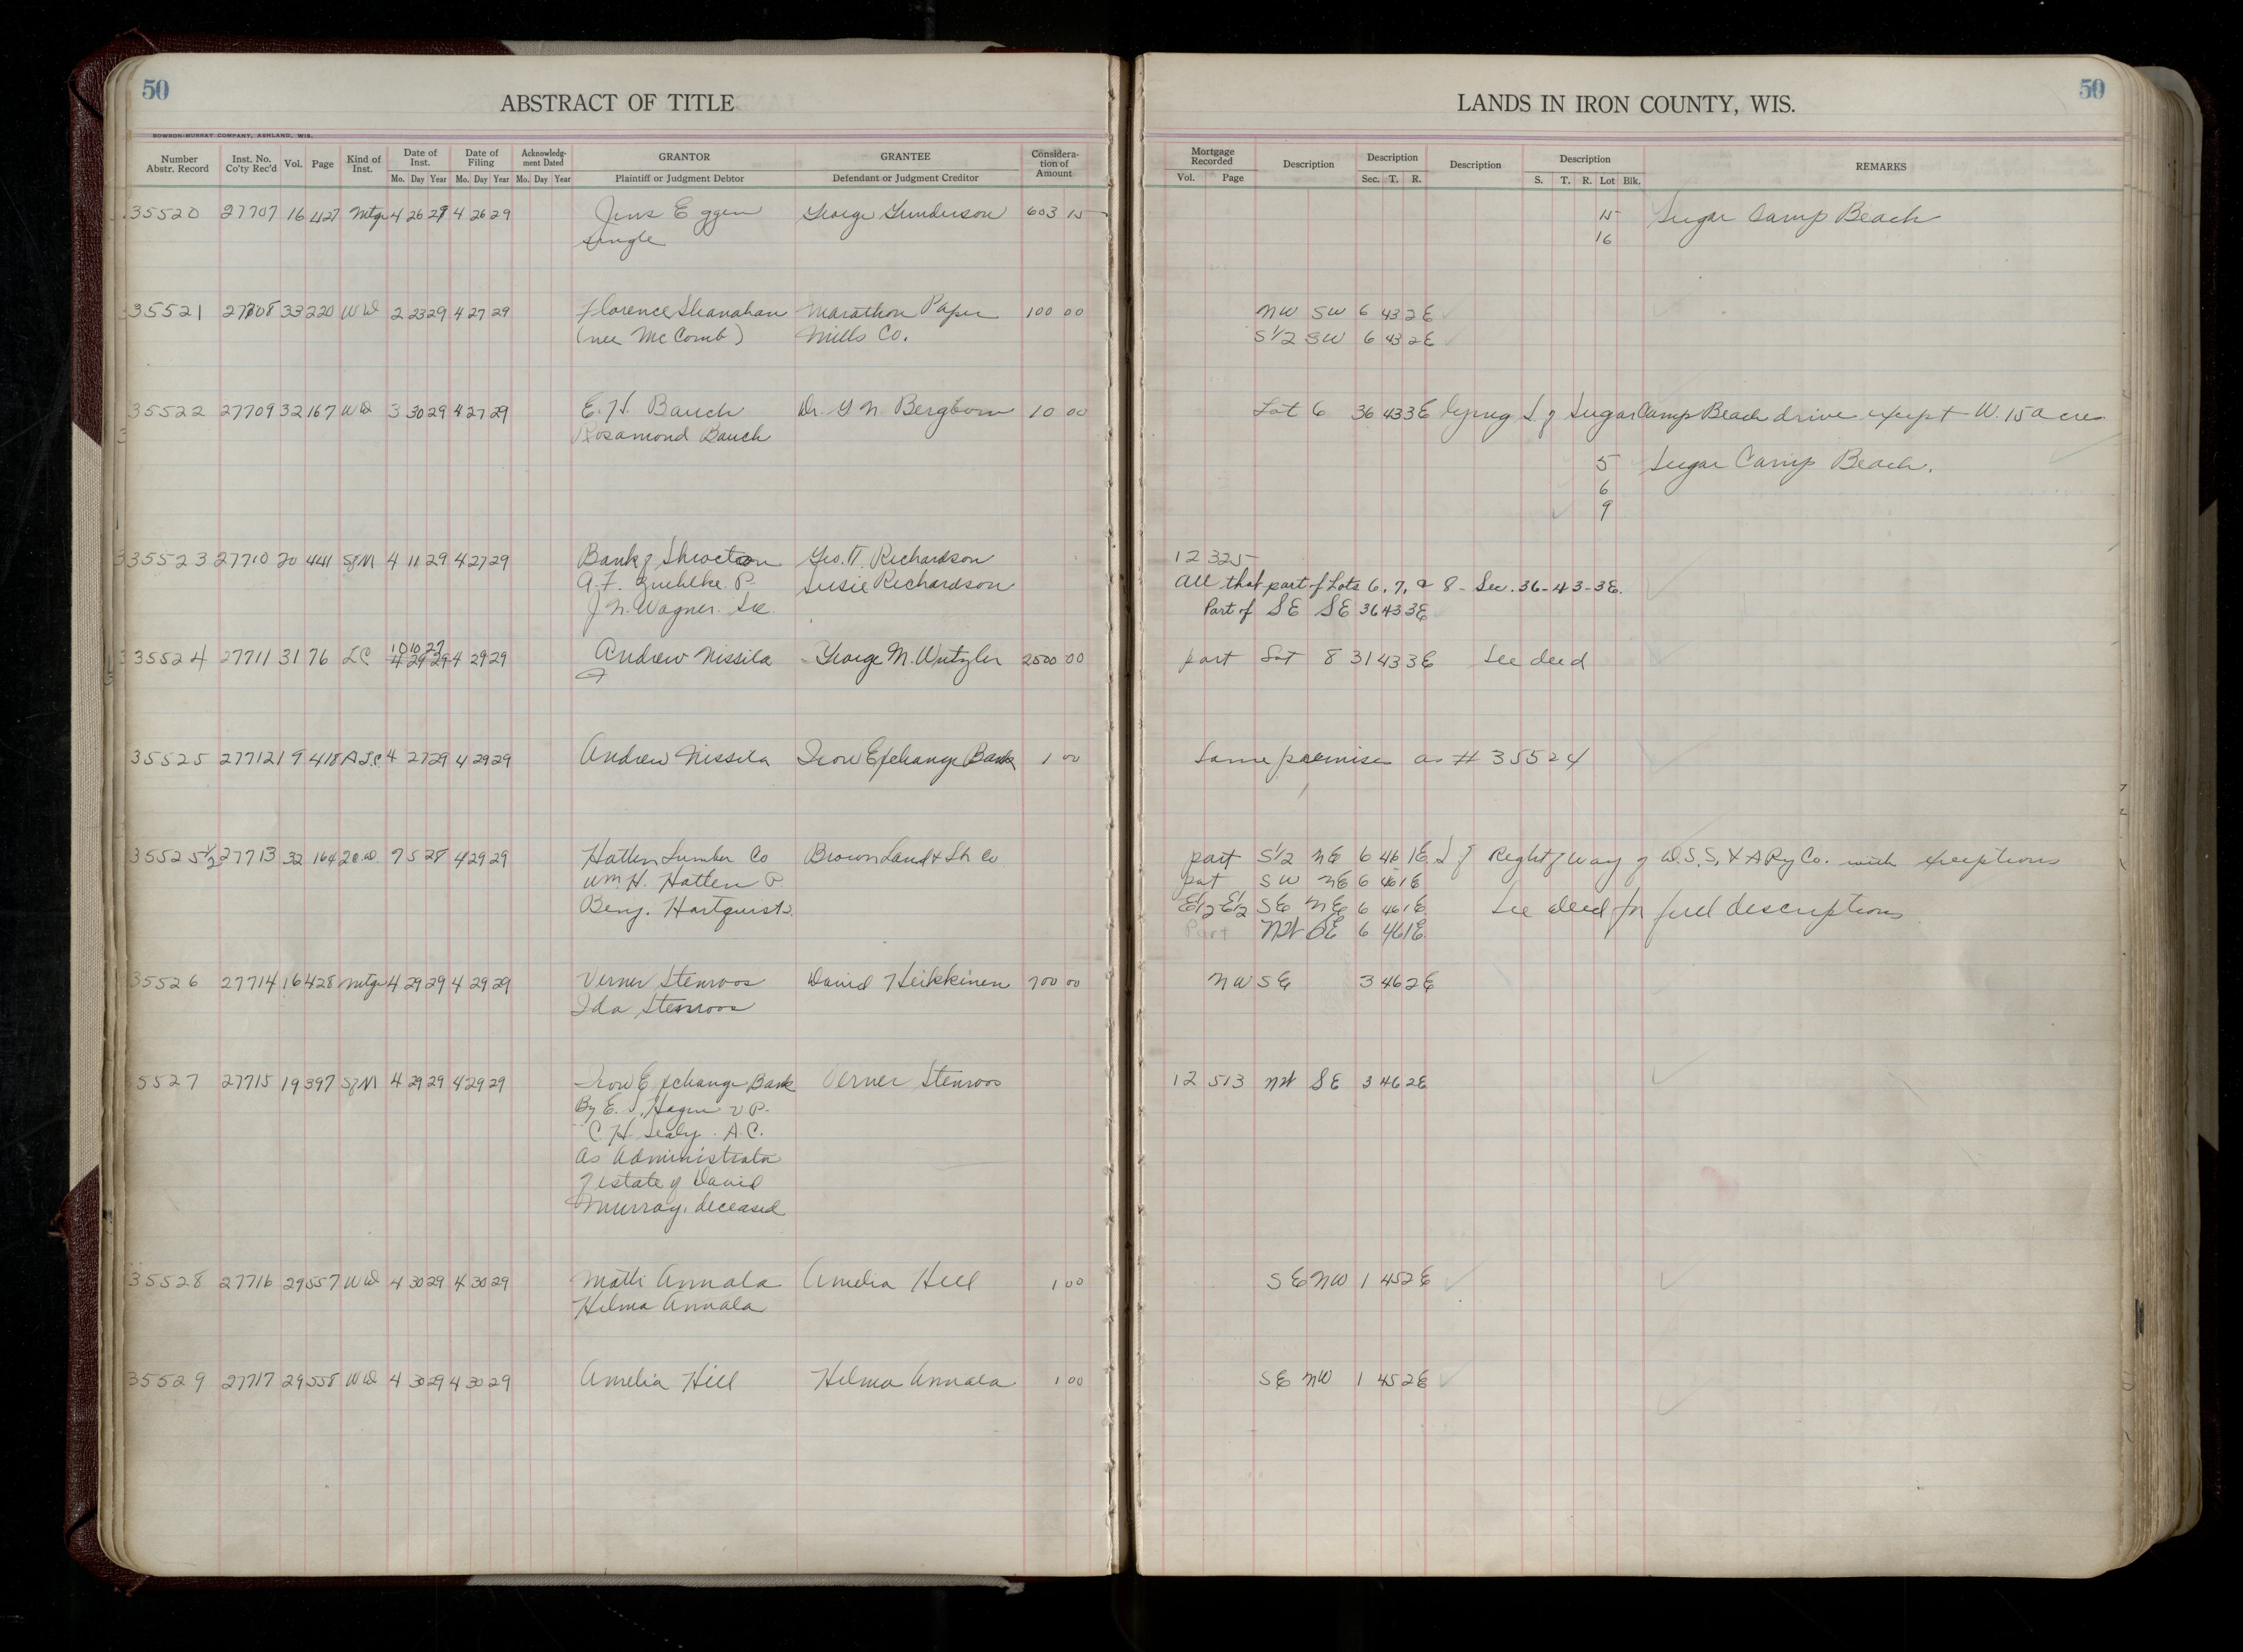 50
ABSTRACT OF TITLE
LANDS IN IRON COUNTY, WIS.
50
BOWRON-MURRAY COMPANY, ASHLAND, WIS.
Number Abstr. Record | Inst. No. Co'ty Rec'd | Vol. | Page | Kind of Inst. | Date of Inst. Mo. Day Year | Date of Filing Mo. Day Year | Acknowledgment Dated Mo. Day Year | GRANTOR Plaintiff or Judgment Debtor | GRANTEE Defendant or Judgment Creditor | Consideration of Amount
Mortgage Recorded Vol. Page | Description | Description Sec. T. R. | Description | Description S. T. R. Lot Blk. | REMARKS
35520 27707 16 427 Mtge 4 26 29 4 26 29 Jens Eggen George Gunderson 603 15 15 Sugar Camp Beach
single 16
35521 27708 33 220 WD 2 23 29 4 27 29 Florence Shanahan Marathon Paper 100 00 NW SW 6 43 2E
(nee McComb) Mills Co. S1/2 SW 6 43 2E
35522 27709 32 167 WD 3 30 29 4 27 29 E. H. Bauch Dr. G N. Bergborn 10 00 Lot 6 36 43 3E lying S. of Sugar Camp Beach drive except W. 15 acres
Rosamond Bauch
5 Sugar Camp Beach.
6
9
35523 27710 20 441 SfM 4 11 29 4 27 29 Bank of Shiocton Geo. H. Richardson 12 325
A. F. Zuehlke P. Susie Richardson All that part of Lots 6, 7, & 8 - Sec. 36-43-3E.
J. N. Wagner. Sec. Part of SE SE 36 43 3E
10 10 27
35524 27711 31 76 LC 4 29 29 4 29 29 Andrew Nissila George M. Wutzler 2500 00 part Lot 8 31 43 3E See deed
35525 27712 19 418 A.L.C. 4 27 29 4 29 29 Andrew Nissila Iron Exchange Bank 1 00 Same premises as # 35524
35525 1/2 27713 32 164 2c.D. 7 5 28 4 29 29 Hatten Lumber Co Brown Land & Lbr Co part S1/2 NE 6 46 1E S of Right of Way of D.S.S. & A Ry Co. with exceptions
Wm. H. Hatten P. part SW NE 6 46 1E
Benj. Hartquist S. E1/2-E1/2 SE NE 6 46 1E See deed for full descriptions
Part NW SE 6 46 1E
35526 27714 16 428 Mtge 4 29 29 4 29 29 Verner Stenroos David Heikkinen 700 00 NW SE 3 46 2E
Ida Stenroos
5527 27715 19 397 SfM 4 29 29 4 29 29 Iron Exchange Bank Verner Stenroos 12 513 NW SE 3 46 2E
By E. J. Hagen V P.
C H Sealy. A. C.
As Administrator
of estate of David
Murray, deceased
35528 27716 29 557 WD 4 30 29 4 30 29 Matti Annala Amelia Hill 1 00 SE NW 1 45 2E
Hilma Annala
35529 27717 29 558 WD 4 30 29 4 30 29 Amelia Hill Hilma Annala 1 00 SE NW 1 45 2E